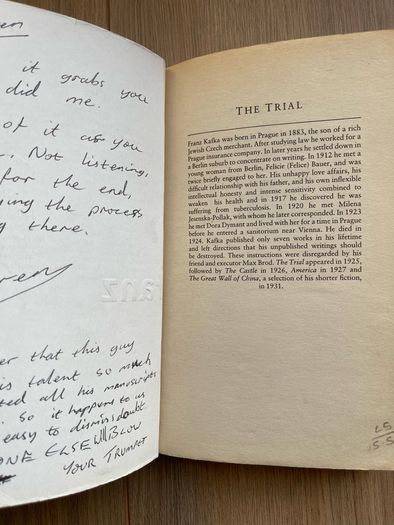 it grabs you
did me.
of it as you
Not listening,
for the end,
the process
there.
ranz
that this guy
is talent so much
all his manuscripts
So it happens to us
easy to dismiss doubt
ONE ELSE WILL BLOW
YOUR TRUMPET
THE TRIAL
Franz Kafka was born in Prague in 1883, the son of a rich
Jewish Czech merchant. After studying law he worked for a
Prague insurance company. In later years he settled down in
a Berlin suburb to concentrate on writing. In 1912 he met a
young woman from Berlin, Felicie (Felice) Bauer, and was
twice briefly engaged to her. His unhappy love affairs, his
difficult relationship with his father, and his own inflexible
intellectual honesty and intense sensitivity combined to
weaken his health and in 1917 he discovered he was
suffering from tuberculosis. In 1920 he met Milena
Jesenska-Pollak, with whom he later corresponded. In 1923
he met Dora Dymant and lived with her for a time in Prague
before he entered a sanitorium near Vienna. He died in
1924. Kafka published only seven works in his lifetime
and left directions that his unpublished writings should
be destroyed. These instructions were disregarded by his
friend and executor Max Brod. The Trial appeared in 1925,
followed by The Castle in 1926, America in 1927 and
The Great Wall of China, a selection of his shorter fiction,
in 1931.